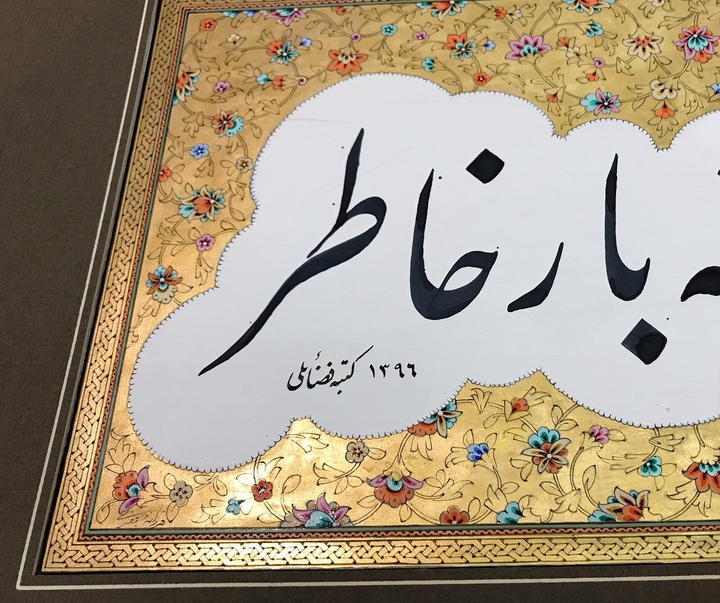 بار خاطر
کتبه فضائلی ۱۳۹۶